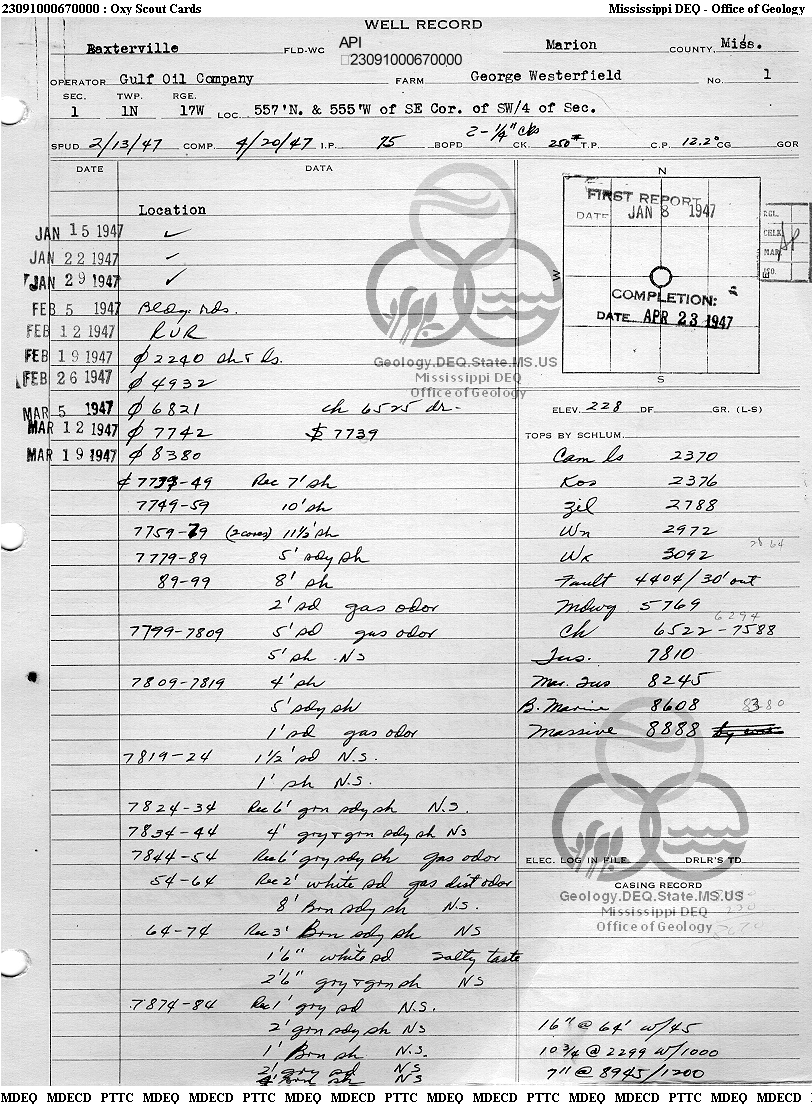 23091000670000 : Oxy Scout Cards
Mississippi DEQ - Office of Geology
WELL RECORD
Baxterville FLD-WC API 23091000670000 Marion COUNTY, Miss.
OPERATOR Gulf Oil Company FARM George Westerfield NO. 1
SEC. TWP. RGE.
1 1N 17W LOC. 557'N. & 555'W of SE Cor. of SW/4 of Sec.
SPUD 2/13/47 COMP. 4/20/47 I.P. 75 BOPD 2-1/4" Cks CK. 250# T.P. C.P. 12.2° CG GOR
DATE DATA
Location
JAN 15 1947 ✓
JAN 22 1947 ✓
JAN 29 1947 ✓
FEB 5 1947 Bldg. rds.
FEB 12 1947 RUR
FEB 19 1947 ϕ 2240 sh & ls.
FEB 26 1947 ϕ 4932
MAR 5 1947 ϕ 6821 ch 6525 dr.
MAR 12 1947 ϕ 7742 $ 7739
MAR 19 1947 ϕ 8380
¢ 7739-49 Rec 7' sh
7749-59 10' sh
7759-79 (2 cores) 11½' sh
7779-89 5' sdy sh
89-99 8' sh
2' sd gas odor
7799-7809 5' sd gas odor
5' sh .NS
7809-7819 4' sh
5' sdy sh
1' sd gas odor
7819-24 1½' sd N.S.
1' sh N.S.
7824-34 Rec 6' grn sdy sh N.S.
7834-44 4' gry & grn sdy sh NS
7844-54 Rec 6' gry sdy sh gas odor
54-64 Rec 2' white sd gas dist odor
8' Brn sdy sh N.S.
64-74 Rec 3' Brn sdy sh NS
1'6" white sd salty taste
2'6" gry & grn sh NS
7874-84 Rec 1' gry sd N.S.
2' grn sdy sh NS
1' Brn sh N.S.
N.S
N
FIRST REPORT
DATE JAN 8 1947
W
E
COMPLETION:
DATE APR 23 1947
S
CHLK
MAR
Geology.DEQ.State.MS.US
Mississippi DEQ
Office of Geology
ELEV. 228 DF. GR. (L-S)
TOPS BY SCHLUM.
Cam ls 2370
Kos 2376
Zil 2788
Wn 2972
Wx 3092
Fault 4404/30' out
Mdwg 5769
6294
Ch 6522-7588
Tus. 7810
Mar. Tus 8245
B. Marine 8608 8380
Massive 8888
ELEC. LOG IN FILE DRLR'S TD
CASING RECORD
Geology.DEQ.State.MS.US
Mississippi DEQ
Office of Geology
16" @ 64' w/45
10 3/4 @ 2299 w/1000
7" @ 8945/1200
MDEQ MDECD PTTC MDEQ MDECD PTTC MDEQ MDECD PTTC MDEQ MDECD PTTC MDEQ MDECD